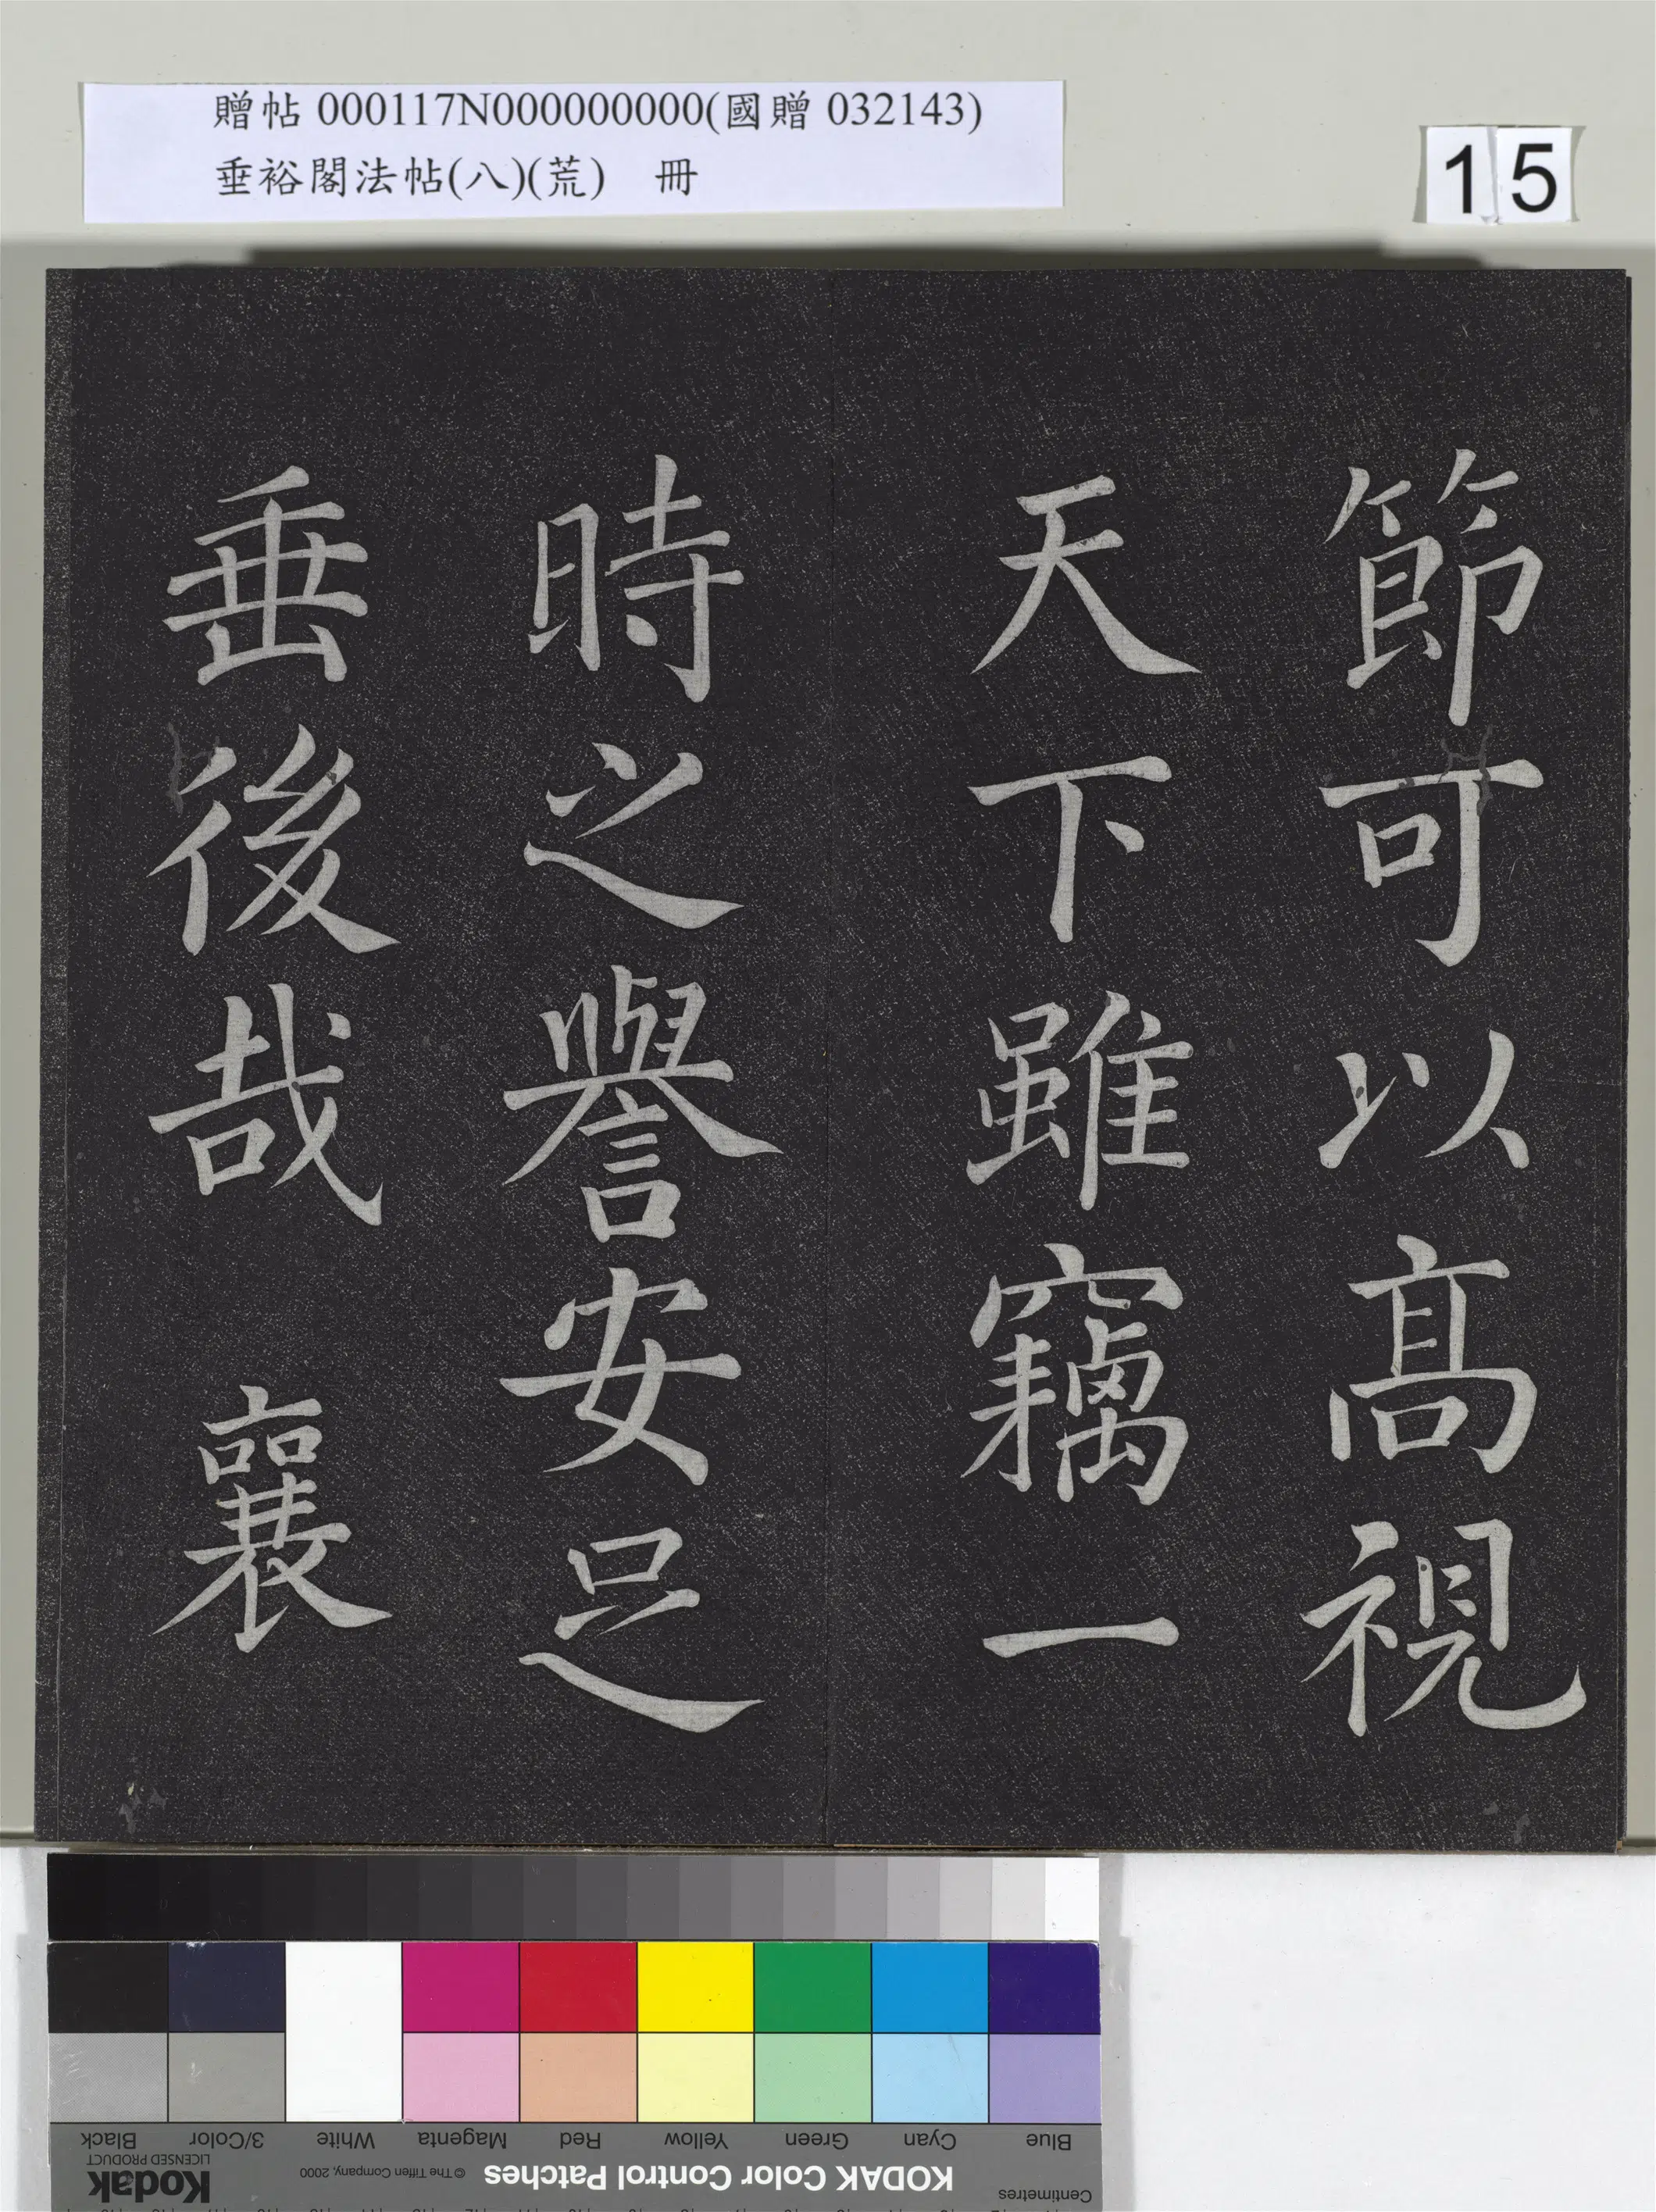 贈帖 000117N000000000(國贈 032143)
垂裕閣法帖(八)(荒) 冊
15
節可以高視
天下雖竊一
時之譽安足
垂後哉 襄
Blue Cyan Green Yellow Red Magenta White 3/Color Black
Centimetres KODAK Color Control Patches © The Tiffen Company, 2000 Kodak
LICENSED PRODUCT